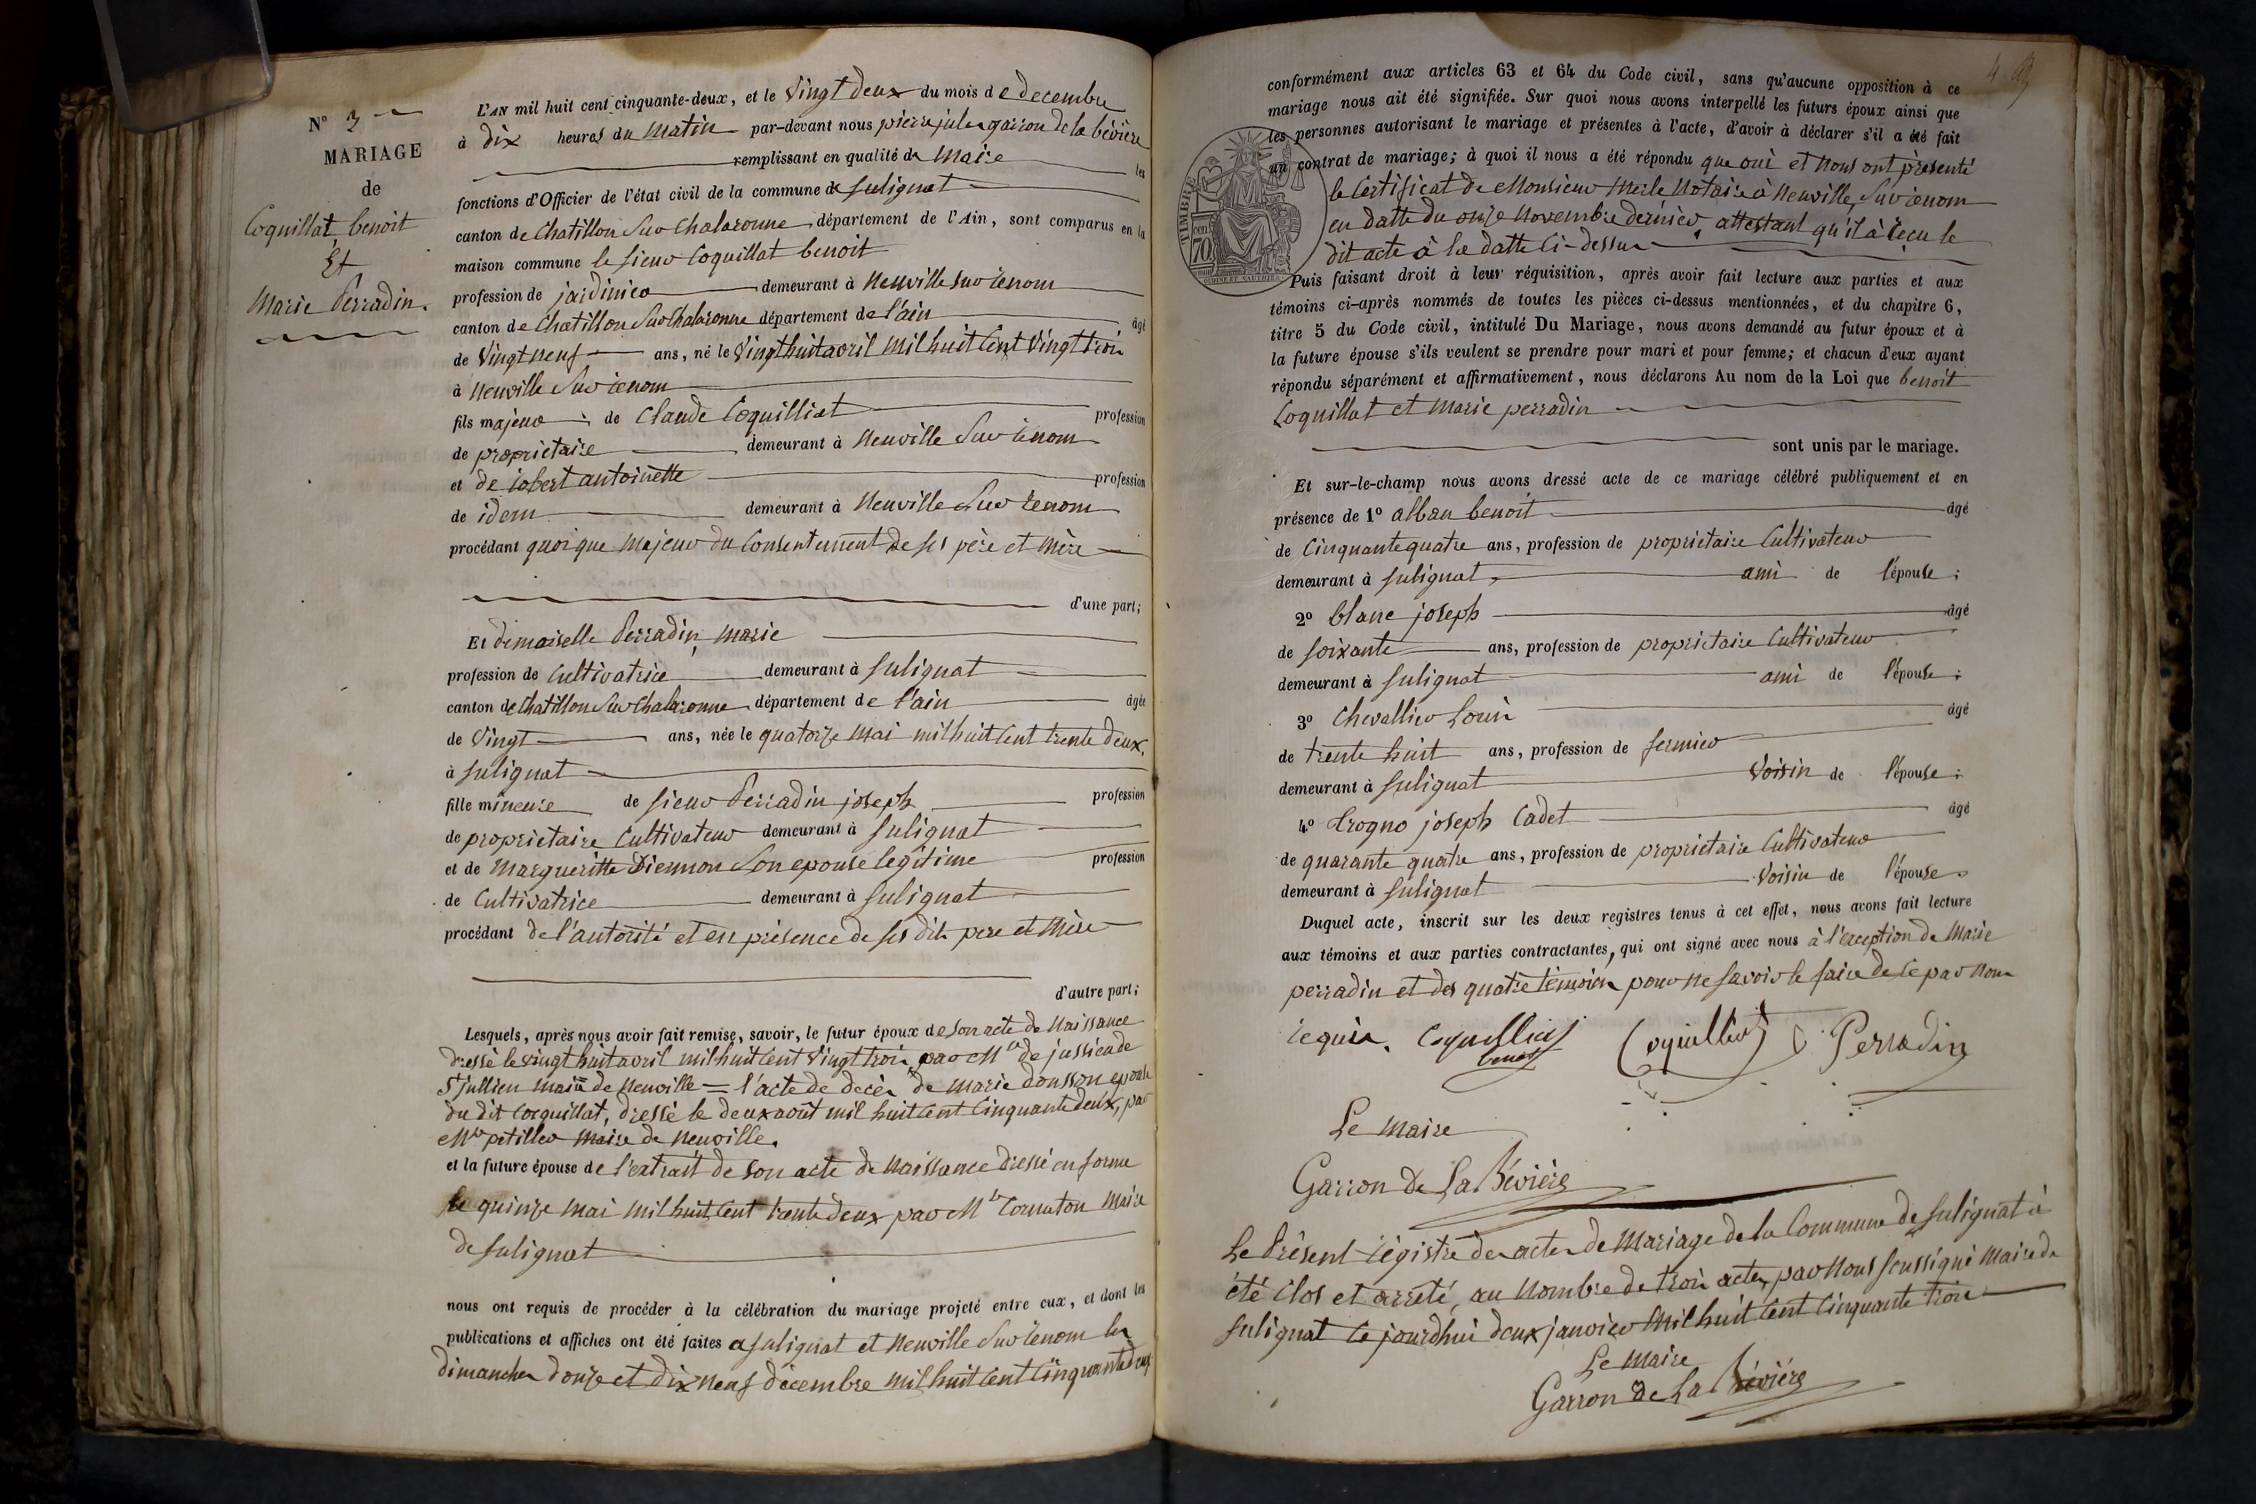 N° 3
MARIAGE
de
Coquillat benoit
Et
Marie Perradin.
L'AN mil huit cent cinquante-deux, et le Vingt deux du mois de decembre
à dix heures du Matin par-devant nous pierre jules garron de la bévière
remplissant en qualité de Maire les
fonctions d'Officier de l'état civil de la commune de Sulignat
canton de Chatillon Sur Chalaronne département de l'Ain, sont comparus en la
maison commune le Sieur Coquillat benoit
profession de jardinier demeurant à Neuville sur renom
canton de Chatillon Sur Chalaronne département de l'ain âgé
de Vingt neuf ans, né le Vingt huit avril Mil huit Cent Vingt trois
à Neuville Sur renom
fils majeur de Claude Coquilliat profession
de propriétaire demeurant à Neuville Sur renom
et de jobert antoinette profession
de idem demeurant à Neuville Sur renom
procédant quoique Majeur du Consentement de ses père et Mère
d'une part;
Et demoiselle Perradin, Marie
profession de Cultivatrice demeurant à Sulignat
canton de Chatillon Sur Chalaronne département de l'ain âgée
de Vingt ans, née le quatorze Mai mil huit Cent trente deux.
à Sulignat
fille mineure de Sieur Perradin joseph profession
de propriétaire Cultivateur demeurant à Sulignat
et de Margueritte Diennon Son epouse legitime profession
de Cultivatrice demeurant à Sulignat
procédant de l'autorité et en présence de ses dits pere et Mère
d'autre part;
Lesquels, après nous avoir fait remise, savoir, le futur époux de Son acte de Naissance
dressé le vingt huit avril mil huit Cent Vingt trois, par Mr de jussieu de
St jullien Maire de Neuville = l'acte de decès de Marie donsson epouse
du dit Coquillat, dressé le deux août mil huit Cent Cinquante deux, par
Mr petiller Maire de Neuville.
et la future épouse de l'extrait de Son acte de Naissance dressé en forme
le quinze Mai Mil huit Cent trente deux par Mr Cornaton Maire
de Sulignat
nous ont requis de procéder à la célébration du mariage projeté entre eux, et dont les
publications et affiches ont été faites a Sulignat et Neuville Sur renom les
dimanches douze et dix neuf décembre mil huit Cent Cinquante deux
conformément aux articles 63 et 64 du Code civil, sans qu'aucune opposition à ce
mariage nous ait été signifiée. Sur quoi nous avons interpellé les futurs époux ainsi que
les personnes autorisant le mariage et présentes à l'acte, d'avoir à déclarer s'il a été fait
un contrat de mariage; à quoi il nous a été répondu que oui et Nous ont présenté
le Certificat de Monsieur Merle Notaire à Neuville, Sur renom
en datte du onze Novembre dernier, attestant qu'il à reçu le
dit acte à la datte Ci-dessus
TIMBRE
cen
70
Puis faisant droit à leur réquisition, après avoir fait lecture aux parties et aux
témoins ci-après nommés de toutes les pièces ci-dessus mentionnées, et du chapitre 6,
titre 5 du Code civil, intitulé Du Mariage, nous avons demandé au futur époux et à
la future épouse s'ils veulent se prendre pour mari et pour femme; et chacun d'eux ayant
répondu séparément et affirmativement, nous déclarons Au nom de la Loi que benoit
Coquillat et Marie perradin
sont unis par le mariage.
Et sur-le-champ nous avons dressé acte de ce mariage célébré publiquement et en
présence de 1° alban benoit âgé
de Cinquante quatre ans, profession de propriétaire Cultivateur
demeurant à Sulignat, ami de l'épouse;
2° blanc joseph âgé
de soixante ans, profession de propriétaire Cultivateur
demeurant à Sulignat ami de l'épouse;
3° Chevallier Louis âgé
de trente huit ans, profession de fermier
demeurant à Sulignat Voisin de l'épouse;
4° Trogno joseph Cadet âgé
de quarante quatre ans, profession de propriétaire Cultivateur
demeurant à Sulignat Voisin de l'épouse
Duquel acte, inscrit sur les deux registres tenus à cet effet, nous avons fait lecture
aux témoins et aux parties contractantes, qui ont signé avec nous à l'exception de Marie
perradin et des quatre témoins pour ne Savoir le faire de Ce par Nous
requis. Coquilliat Coquilliat Perradin
benoit
Le Maire
Garron de La Bévière
Le Présent régistre des actes de Mariage de la Commune de Sulignat à
été Clos et arrété, au Nombre de trois actes, par Nous Soussigné Maire de
Sulignat Ce jourdhui deux janvier Mil huit Cent Cinquante trois
Le Maire
Garron de La Bévière